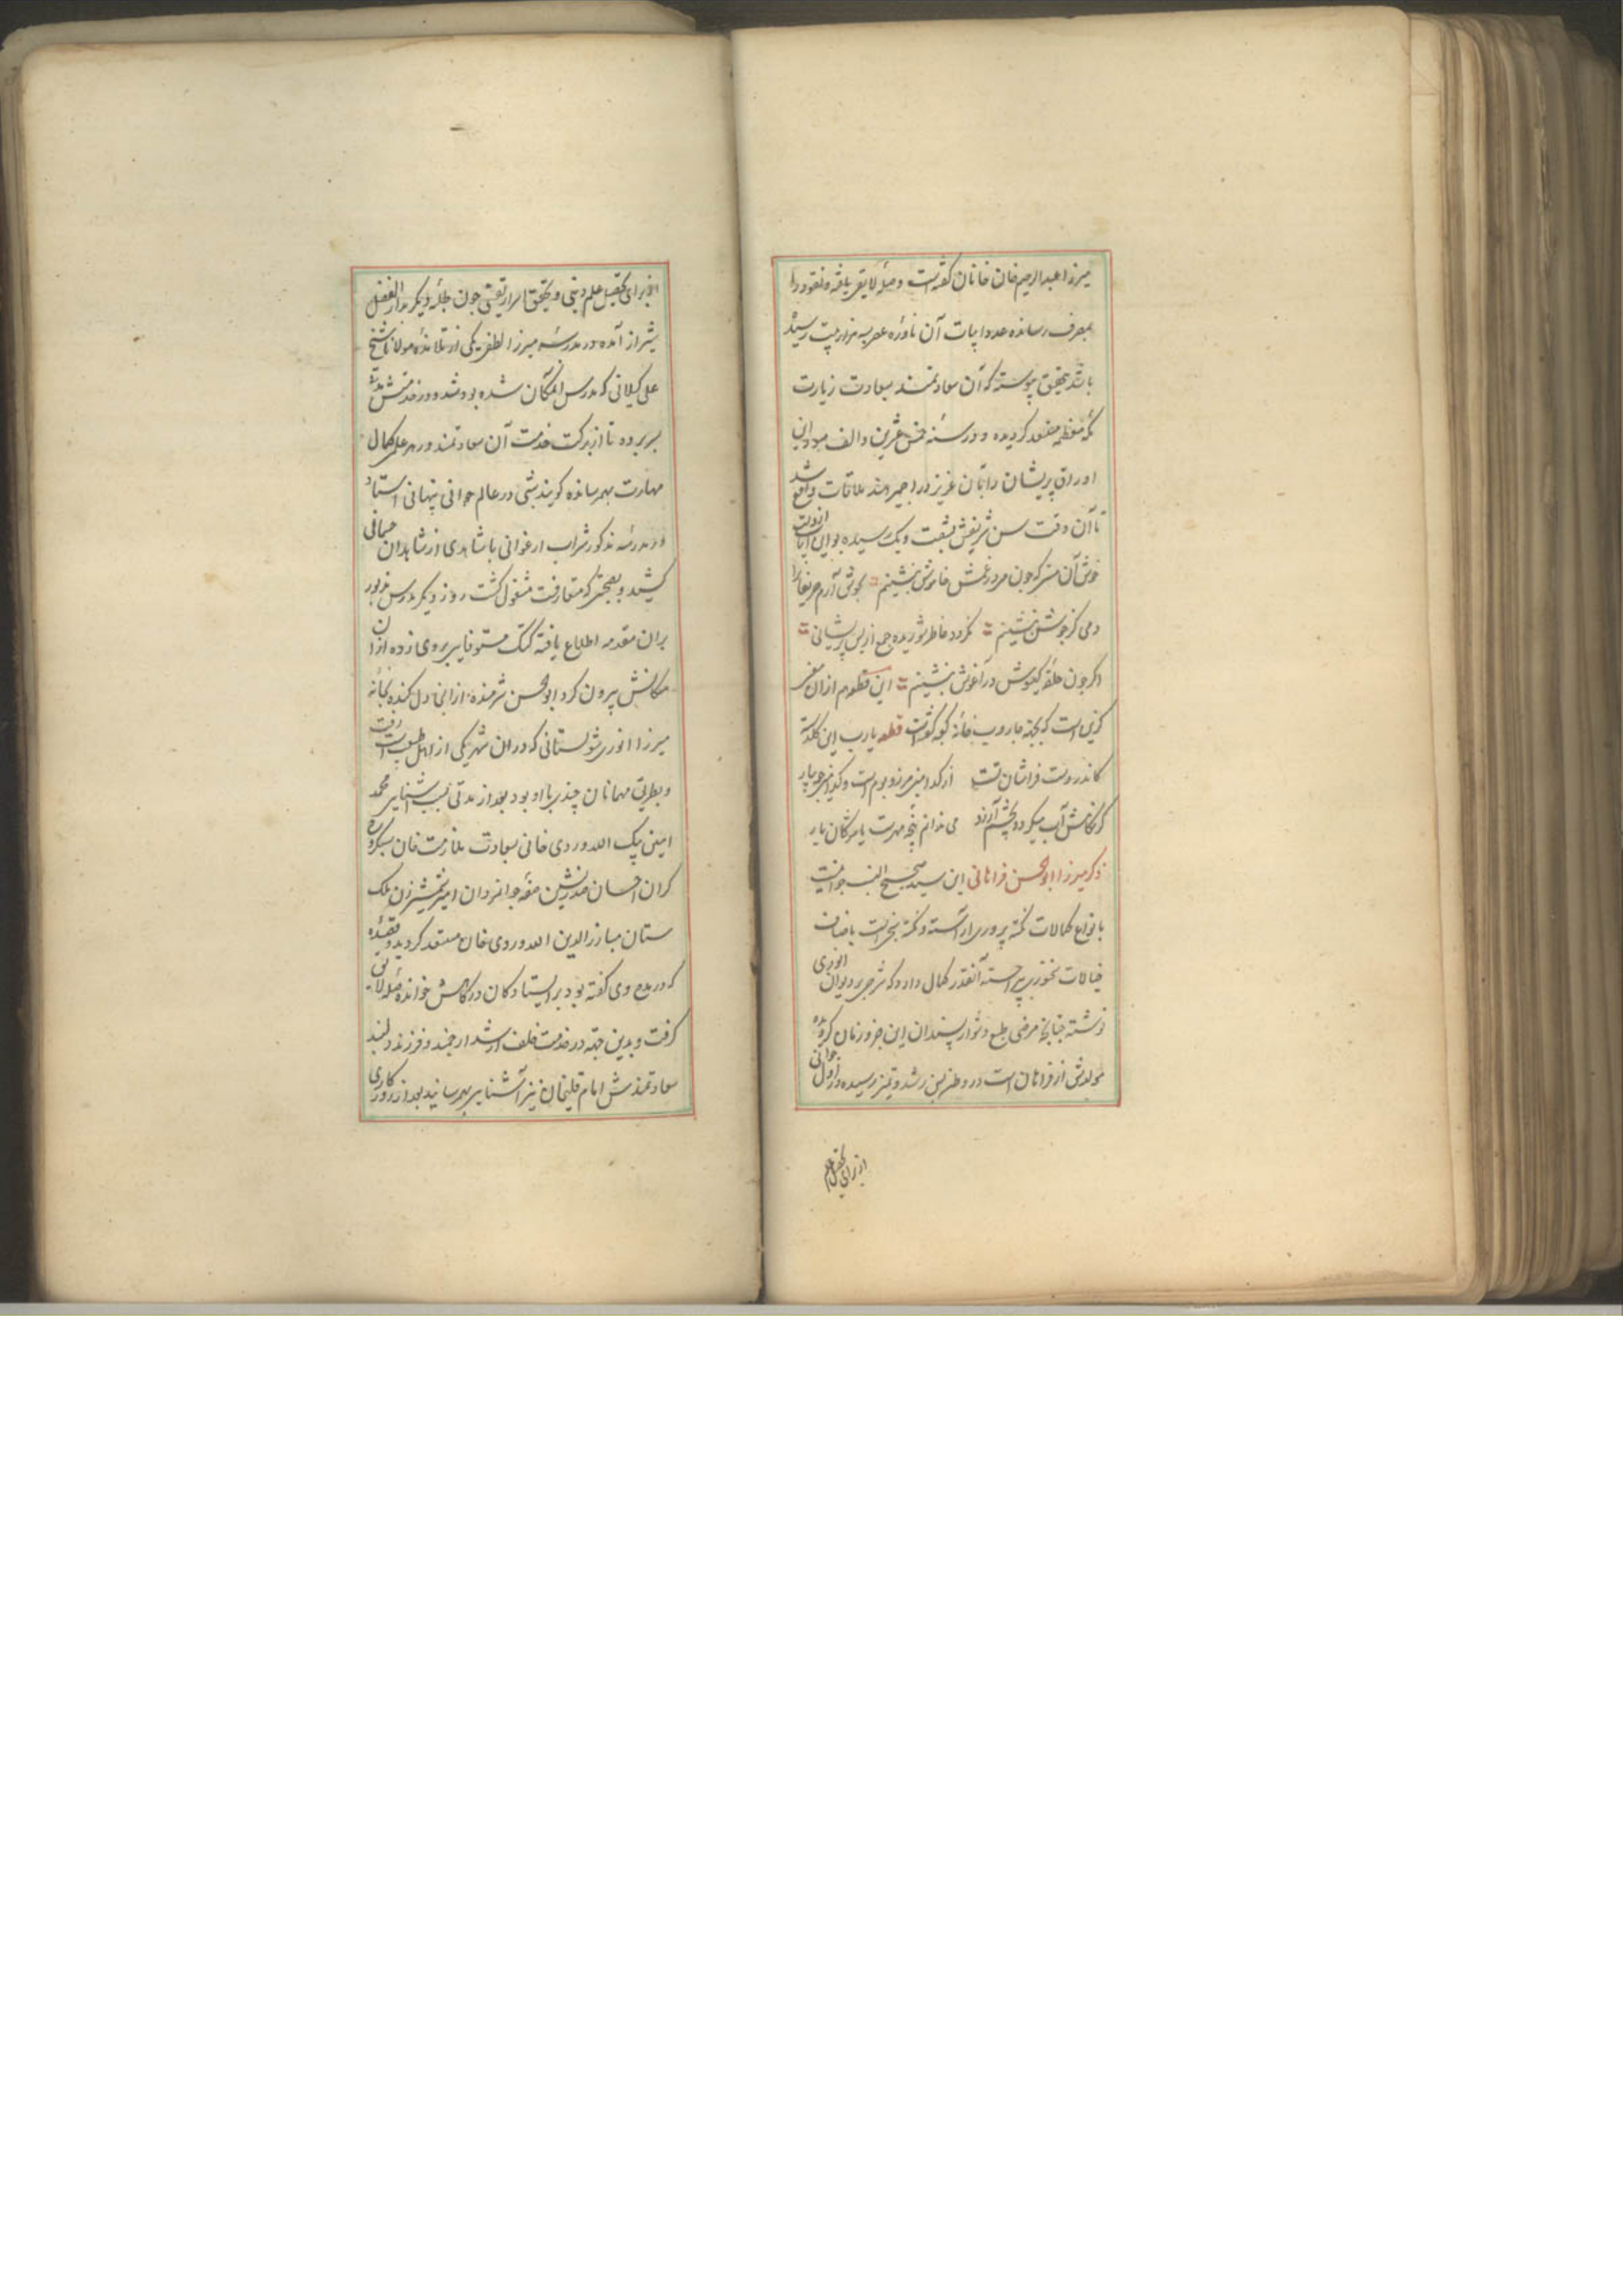 میرزا عبدالرحیم خان خانان گفته است و صله لایق یافته و نقود را
بمصرف رسانده عدد ابیات آن نادره عصر به هزار بیت رسیده
باشد بتحقیق پیوسته که آن سعادتمند بسعادت زیارت
مکه معظمه مستعد گردیده و در سنه خمس عشرین و الف مسود این
اوراق پریشان را بآن عزیز در اجمیر هند ملاقات واقع شد
تا آن وقت سن شریفش بشصت و یک رسیده بود این ابیات ازوست
خوش آن کز هر چون مرد در غمش خاموش بنشینم بجوش آرم حریفانرا
دمی کز جوش بنشینم نگردد خاطر شوریده جمع از بس پریشانی
اگر چون حلقه گیسوش در آغوش بنشینم این قطعه هم ازان
گزین است که بجهة جاروب خانه کعبه گفته است قطعه یارب این گلدسته
کاندر دست فراشان تست از کدامین مرز و بوم است و کدامین جویبار
کز نگاهش آب میگردد بچشم آرزو می ندانم پنجه مهرست یا مژگان یار
ذکر میرزا ابوالحسن فراهانی این سید صحیح النسب جوانیست
بانواع کمالات نکته پروری آراسته و نکته سنجیست باصناف
خیالات سخنوری پیراسته آنقدر کمال دارد که شرحی بر دیوان انوری
نوشته چنانچه مرضی طبع دشوار پسندان این جزو زمان گردیده
مولدش از فراهان است در وطن بسن رشد و تمیز رسیده در اول جوانی
از برای تحصیل علم
از برای تحصیل علم دینی و تحقیق اسرار یقینی چون طلبه دیگر بدارالفضل
شیراز آمده در مدرسه میرزا لطفی یکی از تلامذه مولانا شیخ
علی گیلانی که مدرس آن مکان شده بود شد و در خدمتش مدتی
بسر برده تا از برکت خدمت آن سعادتمند در هر علم کمال
مهارت بهمرسانده گویند شبی در عالم جوانی پنهانی استاد
در مدرسه مذکور شراب ارغوانی با شاهدی از شاهدان جسمانی
کشید و بصحبتی که متعارفست مشغول گشت روز دیگر مدرس مزبور
بران مقدمه اطلاع یافته کتک مستوفایی بروی زده از آن
مکانش بیرون کرد ابوالحسن شرمنده ازانجا دل کنده بخانه
میرزا انوری شولستانی که دران شهر یکی از اهل طبیعت است رفت
و بطریق مهمانان چندی با او بود بعد از مدتی بسبب آشنایی محمد
امین بیک الله وردی خانی بسعادت ملازمت خان سبکروح
گران احسان صدرنشین صفه جوانمردان امیر شمشیرزن ملک
ستان مبارزالدین الله وردی خان مستعد گردید و قصیده
که در مدح وی گفته بود بر ایستادگان درگاهش خوانده صله لایق
گرفت و بدین جهة در خدمت خلف ارشد ارجمند و فرزند دلبند
سعادتمندش امام قلیخان نیز آشنایی بهم رسانید بعد از روزگاری